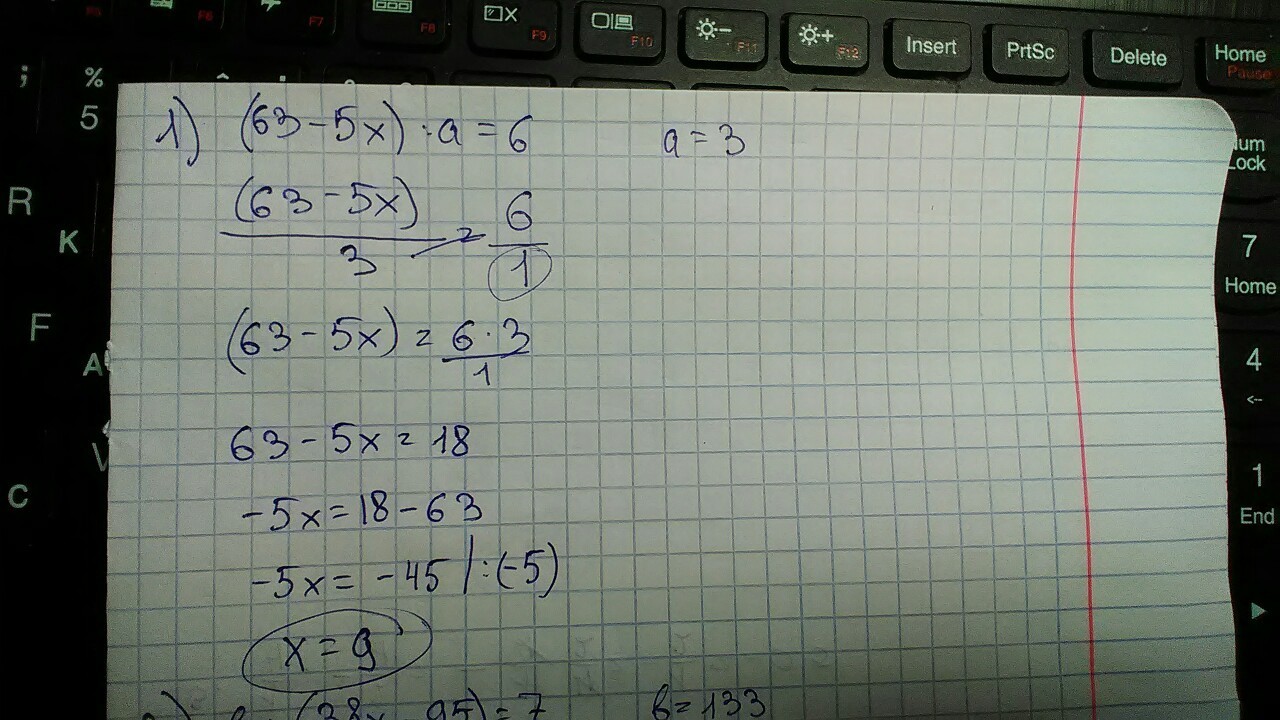 F6 F7 F8 F9 F10 F11 F12 Insert PrtSc Delete Home Pause
; % 5
R K
F A
C V
1) (63-5x):a=6 a=3
(63-5x)/3 = 6/1
(63-5x) = 6·3/1
63-5x=18
-5x=18-63
-5x=-45 |:(-5)
x=9
(38x-95)=7 b=133
Lock
7 Home
4
<--
1 End